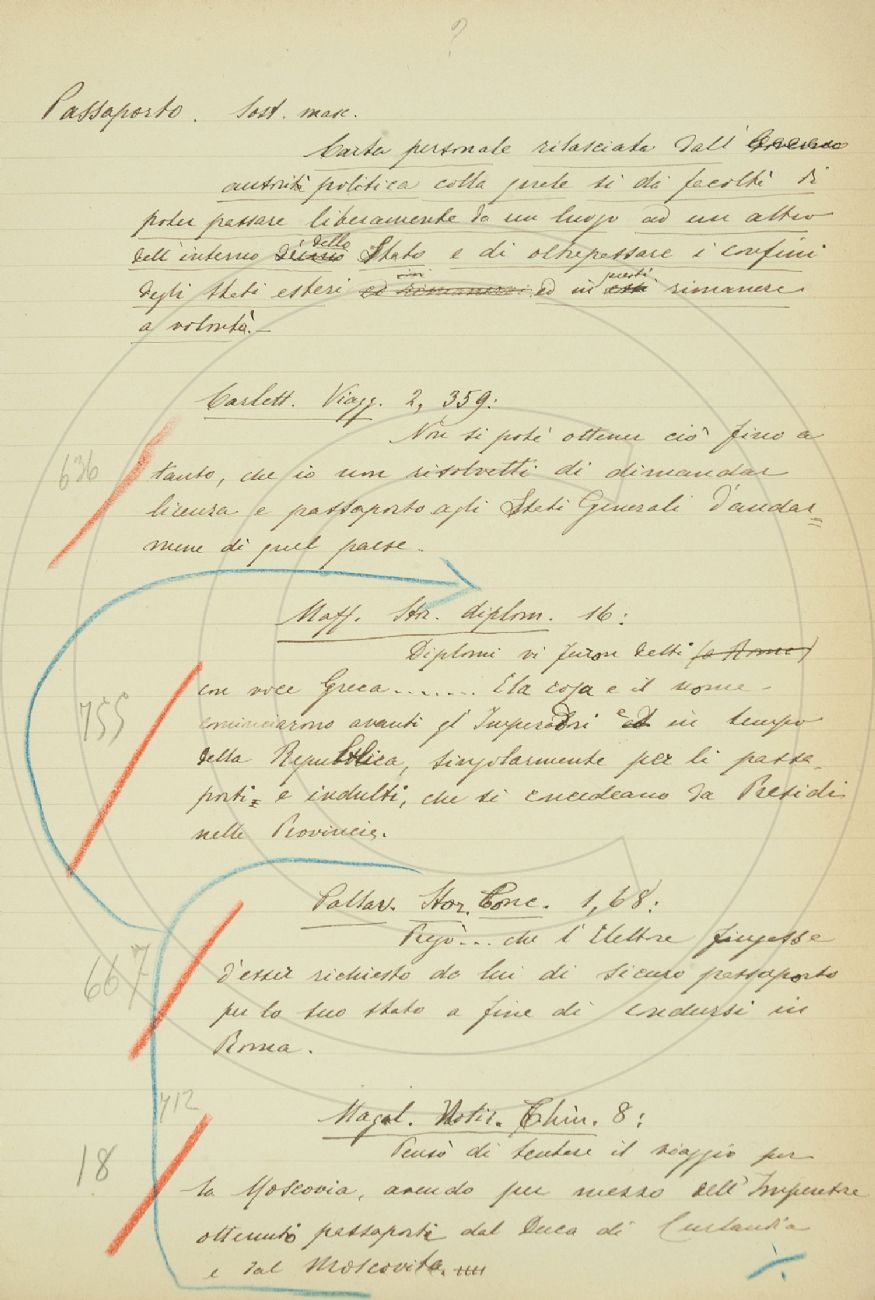 ?
Passaporto. Sost. masc.
Carta personale rilasciata dall'
autorità politica colla quale si dà facoltà di
poter passare liberamente da un luogo ad un altro
dell'interno dello Stato e di oltrepassare i confini
degli Stati esteri ed in questi rimanere
a volontà.
Carlett. Viagg. 2, 359:
Non si potè ottener ciò fino a
636
tanto, che io non risolvetti di dimandar
licenza e passaporto agli Stati Generali d'andar=
mene di quel paese.
Maff. Stor. diplom. 16:
Diplomi vi furon detti (a Roma)
con voce Greca....... E la cosa e il nome
755
cominciarono avanti gl'Imperadri e in tempo
della Repubblica, singolarmente per li passa-
porti= e indulti, che si concedeano da Presidi
nelle Provincie.
Pallav. Stor. Conc. 1, 68:
Pregò... che l'Elettore fingesse
667
d'esser richiesto da lui di sicuro passaporto
per lo suo stato a fine di condursi in
Roma.
712
Magal. Notiz. Chin. 8:
18
Pensò di tentare il viaggio per
la Moscovia, avendo per mezzo dell'Imperatore
ottenuti passaporti dal Duca di Curlandia
e dal Moscovita.